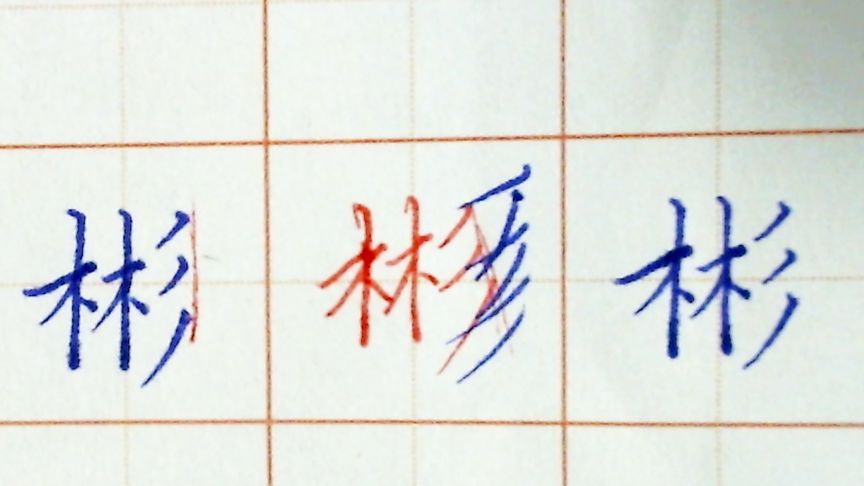 彬 彬 彬